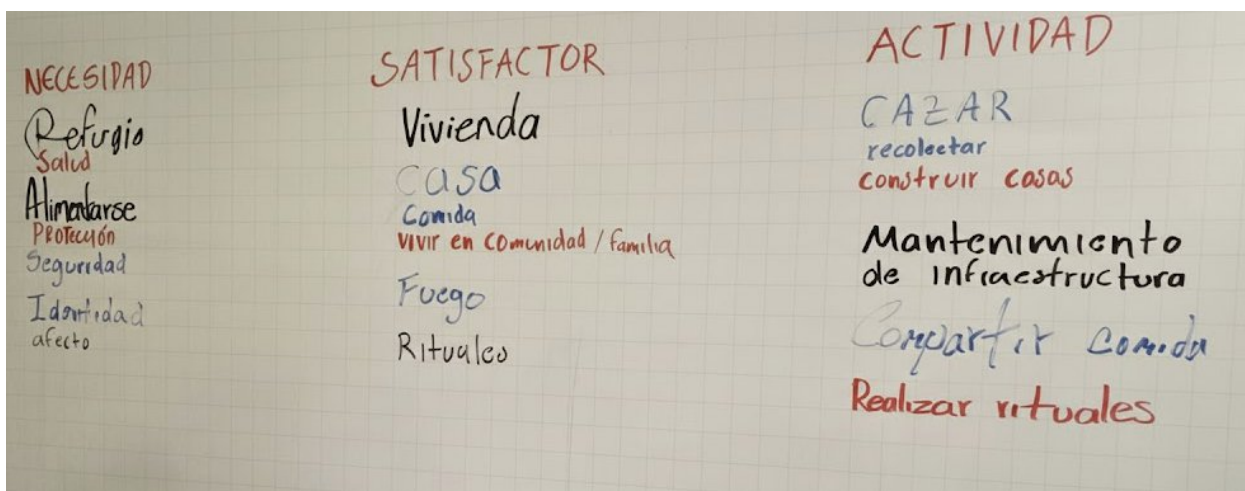 NECESIDAD
Refugio
Salud
Alimentarse
PROTECCIÓN
Seguridad
Identidad
afecto
SATISFACTOR
Vivienda
casa
Comida
vivir en comunidad / familia
Fuego
Rituales
ACTIVIDAD
CAZAR
recolectar
construir casas
Mantenimiento
de infraestructura
Compartir comida
Realizar rituales